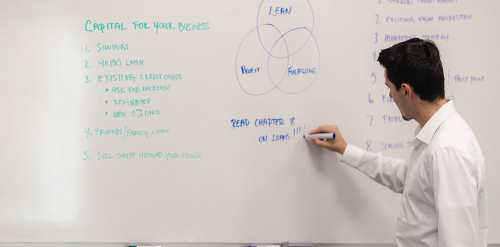 CAPITAL FOR YOUR BUSINESS
1. SAVINGS
2. 401(K) LOAN
3. EXISTING CREDIT CARDS
• ASK FOR INCREASE
• REFINANCE
• NEW 0% CARD
4. FRIENDS/FAMILY LOAN
5. SELL STUFF AROUND YOUR HOUSE
LEAN
PROFIT
FULFILLING
READ CHAPTER 8
ON LOANS!!!
1.
2. EXCITING VALUE PROPOSITION
3. MARKETING STRATEGY
4
5
6.
7.
8.